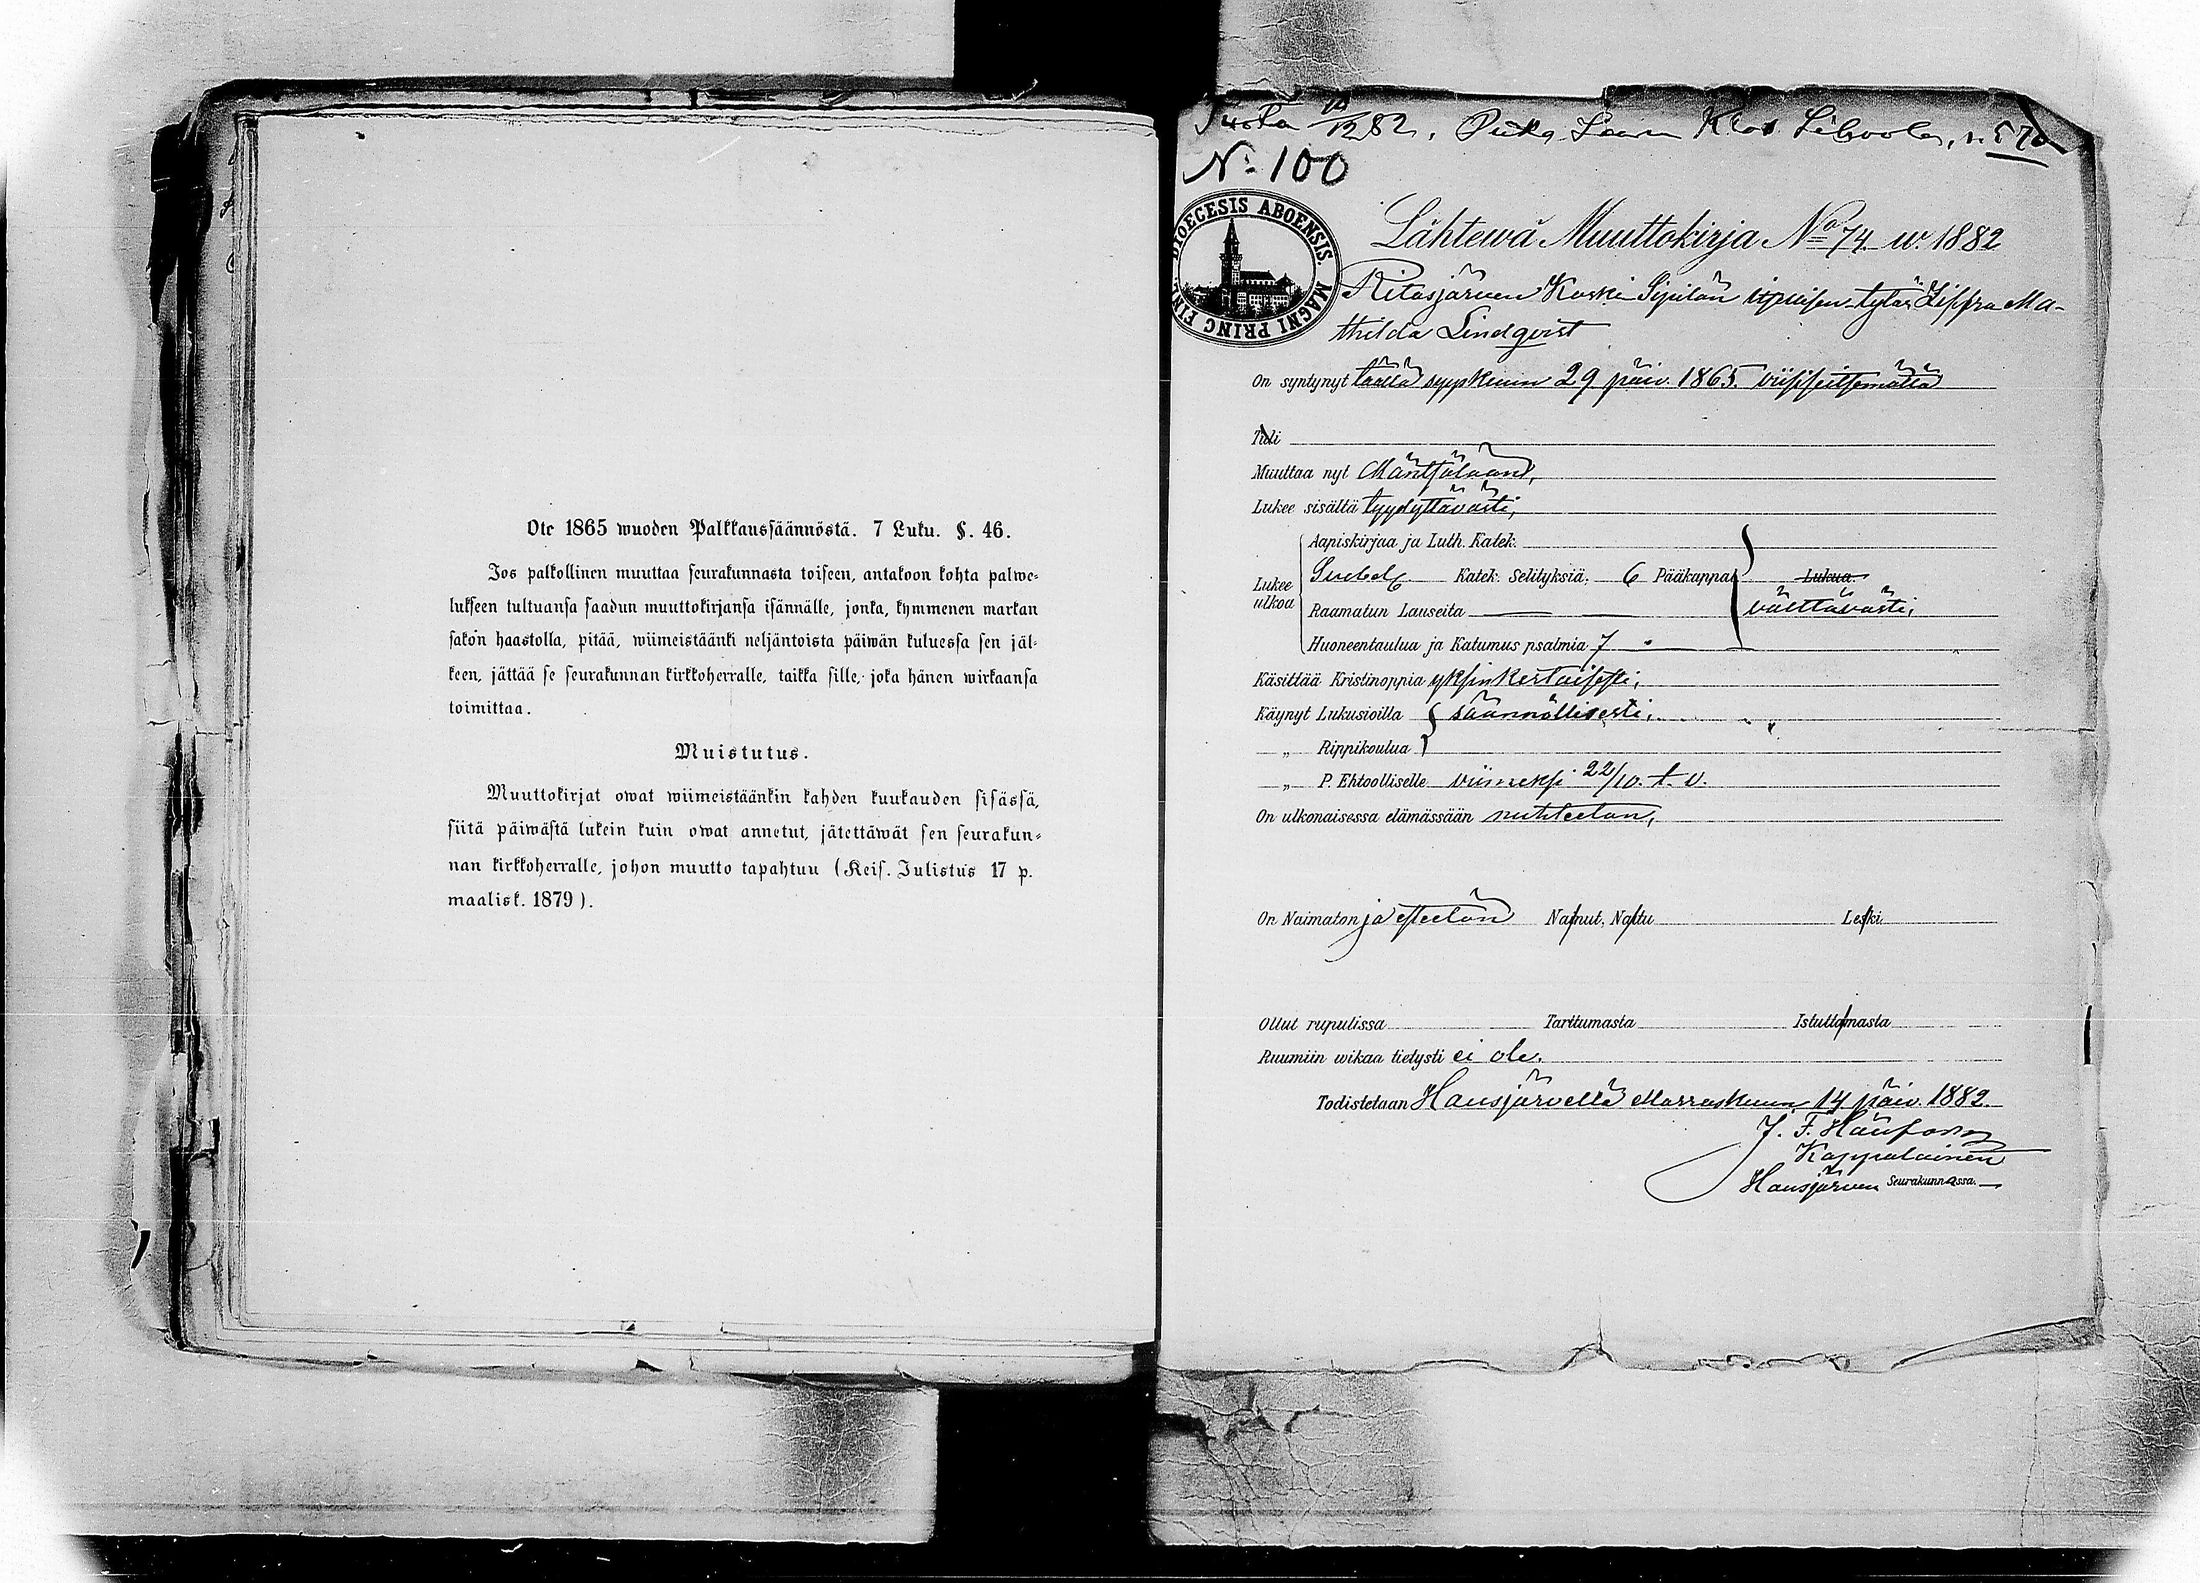 Ote 1865 wuoden Palkkaussäännöstä. 7 Luku. §. 46.
Jos palkollinen muuttaa seurakunnasta toiseen, antakoon kohta palwe-
lukseen tultuansa saadun muuttokirjansa isännälle, jonka, kymmenen markan
sakon haastolla, pitää, wiimeistäänki neljäntoista päiwän kuluessa sen jäl-
keen, jättää se seurakunnan kirkkoherralle, taikka sille, joka hänen wirkaansa
toimittaa.
Muistutus.
Muuttokirjat owat wiimeistäänkin kahden kuukauden sisässä,
siitä päiwästä lukein kuin owat annetut, jätettäwät sen seurakun-
nan kirkkoherralle, johon muutto tapahtuu (Keis. Julistus 17 p.
maalisk. 1879).
12 82, 570
N: 100
DIOECESIS ABOENSIS. MAGNI PRINC FINL.
Lähtewä Muuttokirja No 74 w. 1882
Koski Sipilän itsellisen tytär Ma-
thilda Lindqvist
On syntynyt täällä syyskuun 29 päiv. 1865. viisiseitsemättä
Tuli
Muuttaa nyt Mäntsälään,
Lukee sisältä tyydyttävästi,
Aapiskirjaa ja Luth. Katek.
Lukee ulkoa Katek. Selityksiä: 6 Pääkappal Lukua.
Raamatun Lauseita välttävästi;
Huoneentaulua ja Katumus psalmia 7
Käsittää Kristinoppia yksinkertaisesti;
Käynyt Lukusioilla säännöllisesti;
„ Rippikoulua
„ P. Ehtoolliselle viimeksi 22/10. t. v.
On ulkonaisessa elämässään nuhteeton,
On Naimaton ja esteetön Nainut, Naitu Leski
Ollut rupulissa Tarttumasta Istuttamasta
Ruumiin wikaa tietysti ei ole.
Todistetaan Hausjärvellä Marraskuun 14 päiv. 1882.
J. F.
Kappalainen
Hausjärven Seurakunnassa.